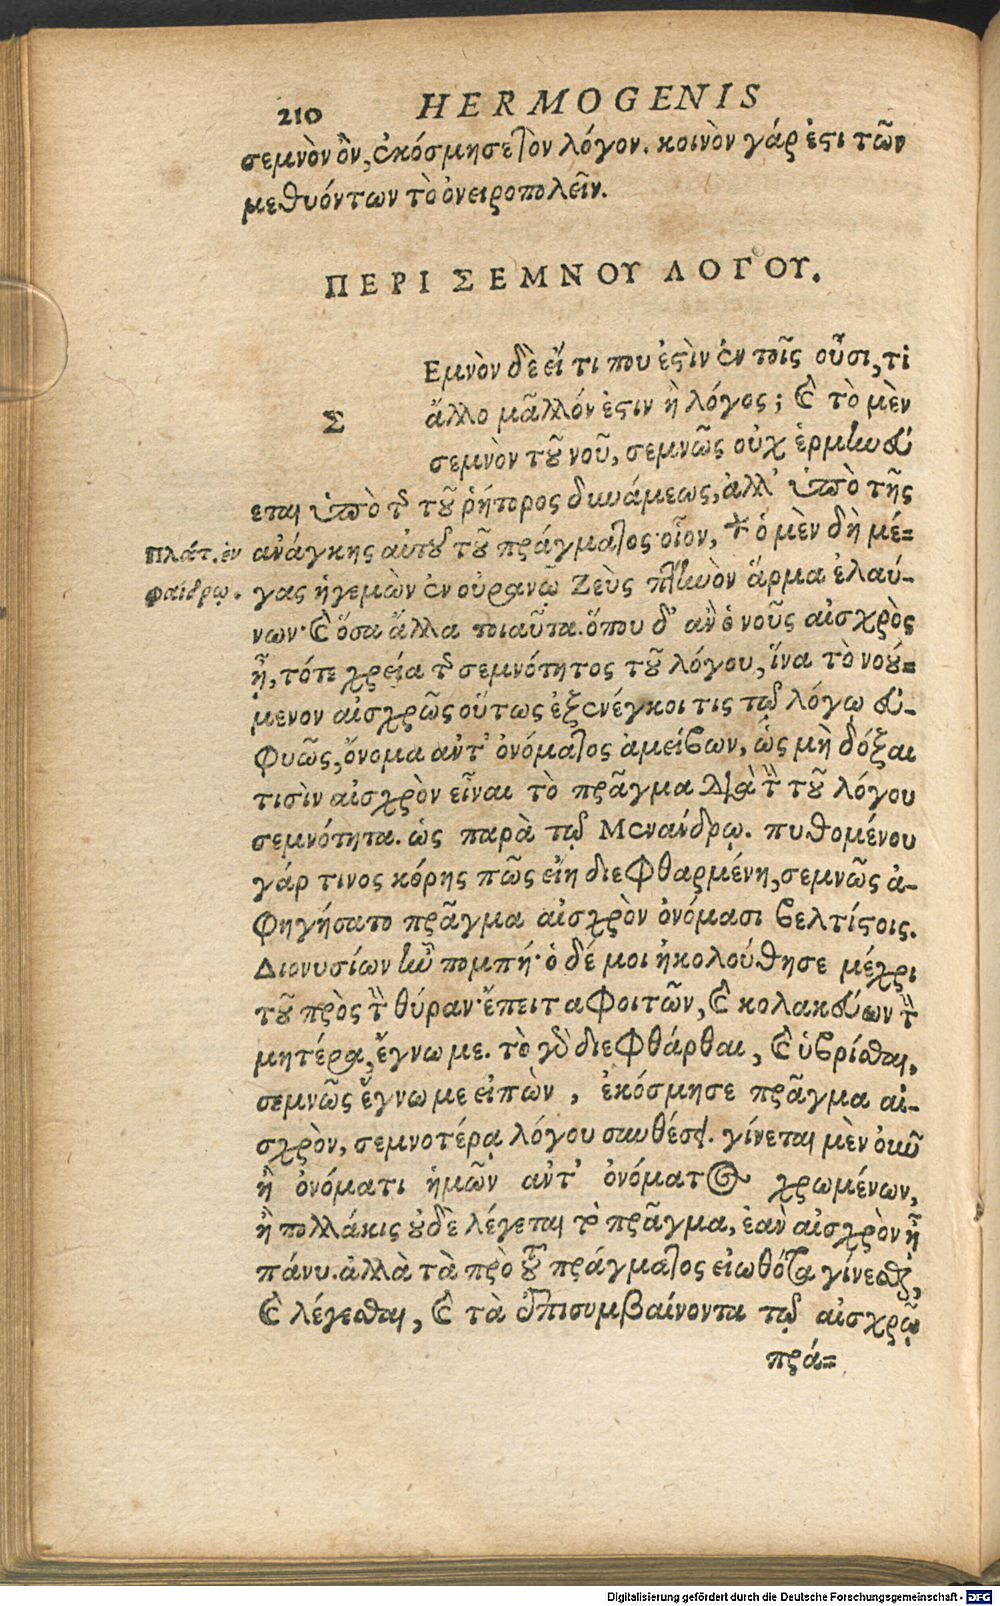 210 HERMOGENIS
σεμνὸν ὂν, ἐκόσμησε τὸν λόγον. κοινὸν γάρ ἐστι τῶν
μεθυόντων τὸ ὀνειροπολεῖν.
ΠΕΡΙ ΣΕΜΝΟΥ ΛΟΓΟΥ.
Σ Εμνὸν δὲ εἴ τι που ἐστὶν ἐν τοῖς οὖσι, τί
ἄλλο μᾶλλόν ἐστιν ἢ λόγος; καὶ τὸ μὲν
σεμνὸν τοῦ νοῦ, σεμνῶς οὐχ ἑρμηνεύ
εται ὑπὸ τῆς τοῦ ῥήτορος δυνάμεως, ἀλλ' ὑπὸ τῆς
Πλάτ. ἐν
φαίδρῳ.
ἀνάγκης αὐτοῦ τοῦ πράγματος· οἷον, * ὁ μὲν δὴ μέ=
γας ἡγεμὼν ἐν οὐρανῷ Ζεὺς πτηνὸν ἅρμα ἐλαύ-
νων· καὶ ὅσα ἄλλα τοιαῦτα. ὅπου δ' ἂν ὁ νοῦς αἰσχρὸς
ᾖ, τότε χρεία τῆς σεμνότητος τοῦ λόγου, ἵνα τὸ νού=
μενον αἰσχρῶς οὕτως ἐξενέγκοι τις τῷ λόγῳ εὐ-
φυῶς, ὄνομα ἀντ' ὀνόματος ἀμείβων, ὡς μὴ δόξαι
τισὶν αἰσχρὸν εἶναι τὸ πρᾶγμα διὰ τὴν τοῦ λόγου
σεμνότητα. ὡς παρὰ τῷ Μενάνδρῳ. πυθομένου
γάρ τινος κόρης πῶς εἴη διεφθαρμένη, σεμνῶς ἀ-
φηγήσατο πρᾶγμα αἰσχρὸν ὀνόμασι βελτίστοις.
Διονυσίων ἦν πομπή· ὁ δέ μοι ἠκολούθησε μέχρι
τοῦ πρὸς τὴν θύραν· ἔπειτα φοιτῶν, καὶ κολακεύων τὴν
μητέρα, ἔγνω με. τὸ γὰρ διεφθάρθαι, καὶ ὑβρίσθαι,
σεμνῶς ἔγνω με εἰπὼν, ἐκόσμησε πρᾶγμα αἰ-
σχρὸν, σεμνοτέρᾳ λόγου συνθέσει. γίνεται μὲν οὖν
ἢ ὀνόματι ἡμῶν ἀντ' ὀνόματος χρωμένων,
ἢ πολλάκις οὐδὲ λέγεται τὸ πρᾶγμα, ἐὰν αἰσχρὸν ᾖ
πάνυ. ἀλλὰ τὰ πρὸ τοῦ πράγματος εἰωθότα γίνεσθαι,
καὶ λέγεσθαι, καὶ τὰ ἐπισυμβαίνοντα τῷ αἰσχρῷ
πρά=
Digitalisierung gefördert durch die Deutsche Forschungsgemeinschaft - DFG